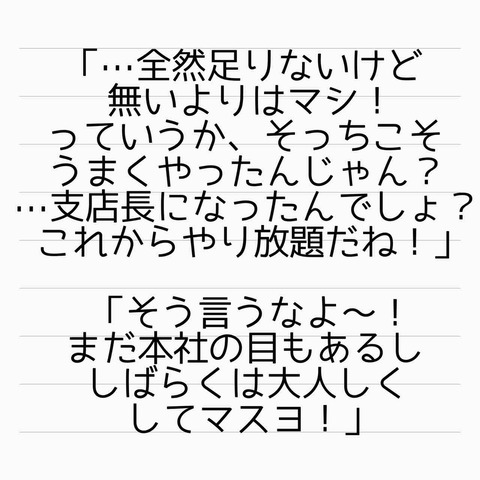 「…全然足りないけど
無いよりはマシ！
っていうか、そっちこそ
うまくやったんじゃん？
…支店長になったんでしょ？
これからやり放題だね！」
「そう言うなよ〜！
まだ本社の目もあるし
しばらくは大人しく
してマスヨ！」